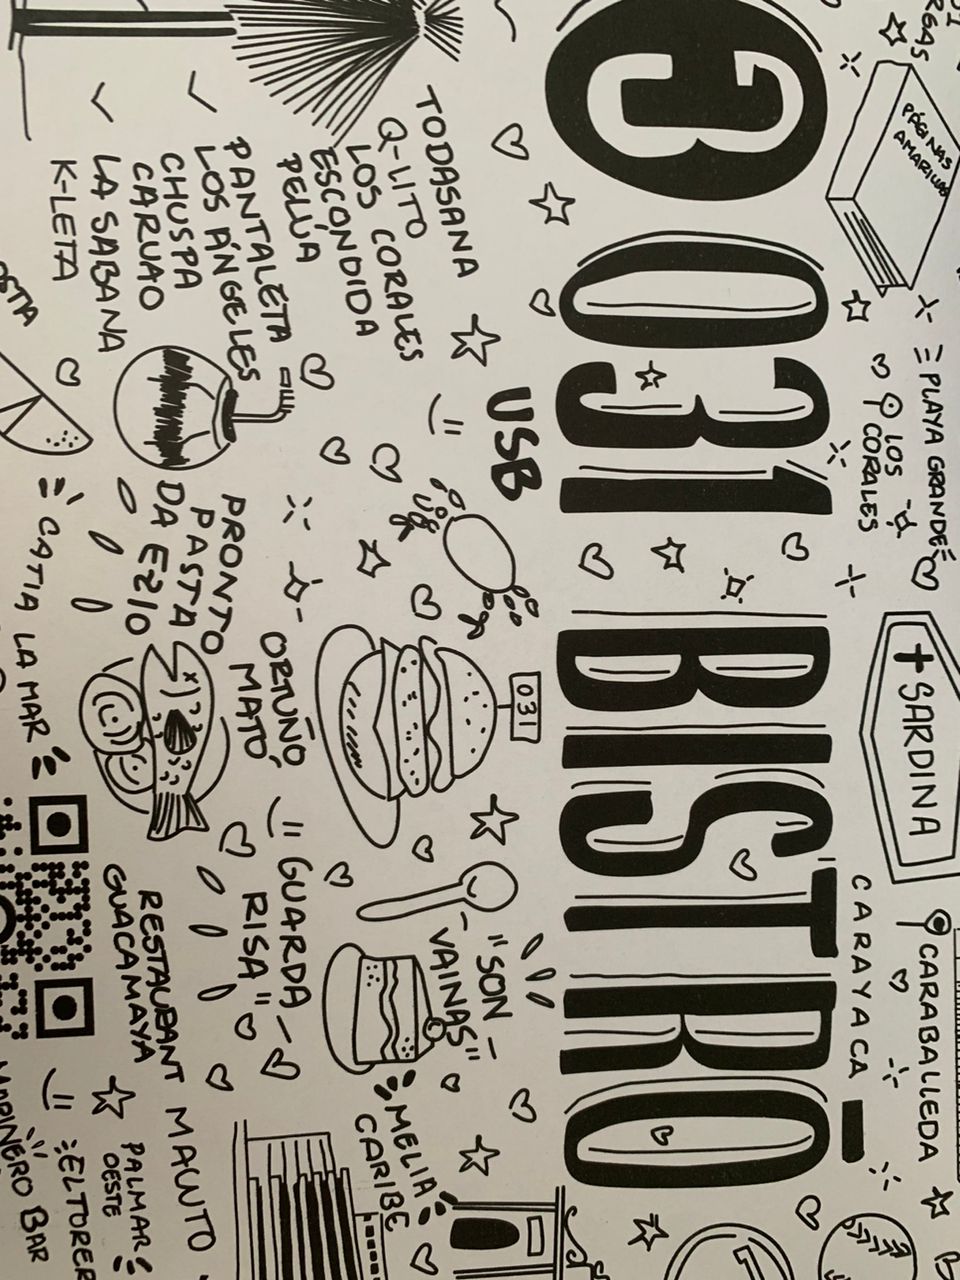 031 BISTRO
PÁGINAS
AMARILLAS
PLAYA GRANDE
LOS
CORALES
+SARDINA
CARAYACA
CARABALLEDA
USB
TODASANA
Q-LITO
LOS CORALES
ESCONDIDA
PELÚA
PANTALETA
LOS ÁNGELES
CHUSPA
CARUAO
LA SABANA
K-LETA
031
"SON
VAINAS"
ORTUÑO
MATÓ
GUARDA
RISA"
PRONTO
PASTA
DA EZIO
CATIA LA MAR
RESTAURANT
GUACAMAYA
MELIA
CARIBE
MACUTO
PALMAR
OESTE
BAR